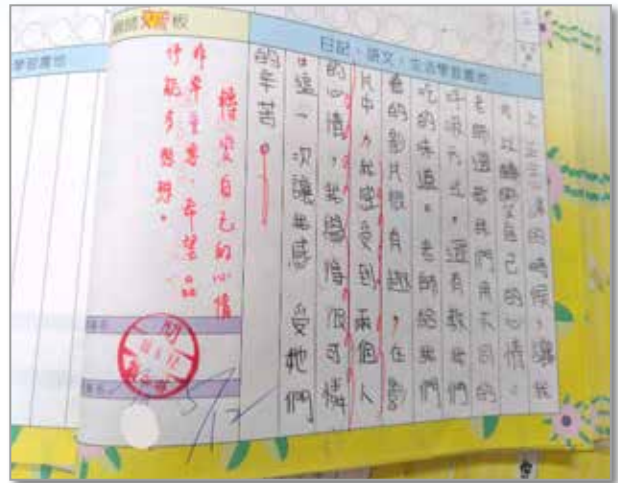 日記、語文、生活學習園地
的時候，讓我
可以轉變自己的心情。
老師還教我們用不同的
呼吸方法，還有教我們
吃的味道。老師給我們
看的影片很有趣，在影
片中，我感受到兩個人
的心情，我覺得很可憐
這一次讓我感受她們
的辛苦。
轉變自己的心情
非常重要，希望品
好能多想想。
學習園地
5/12